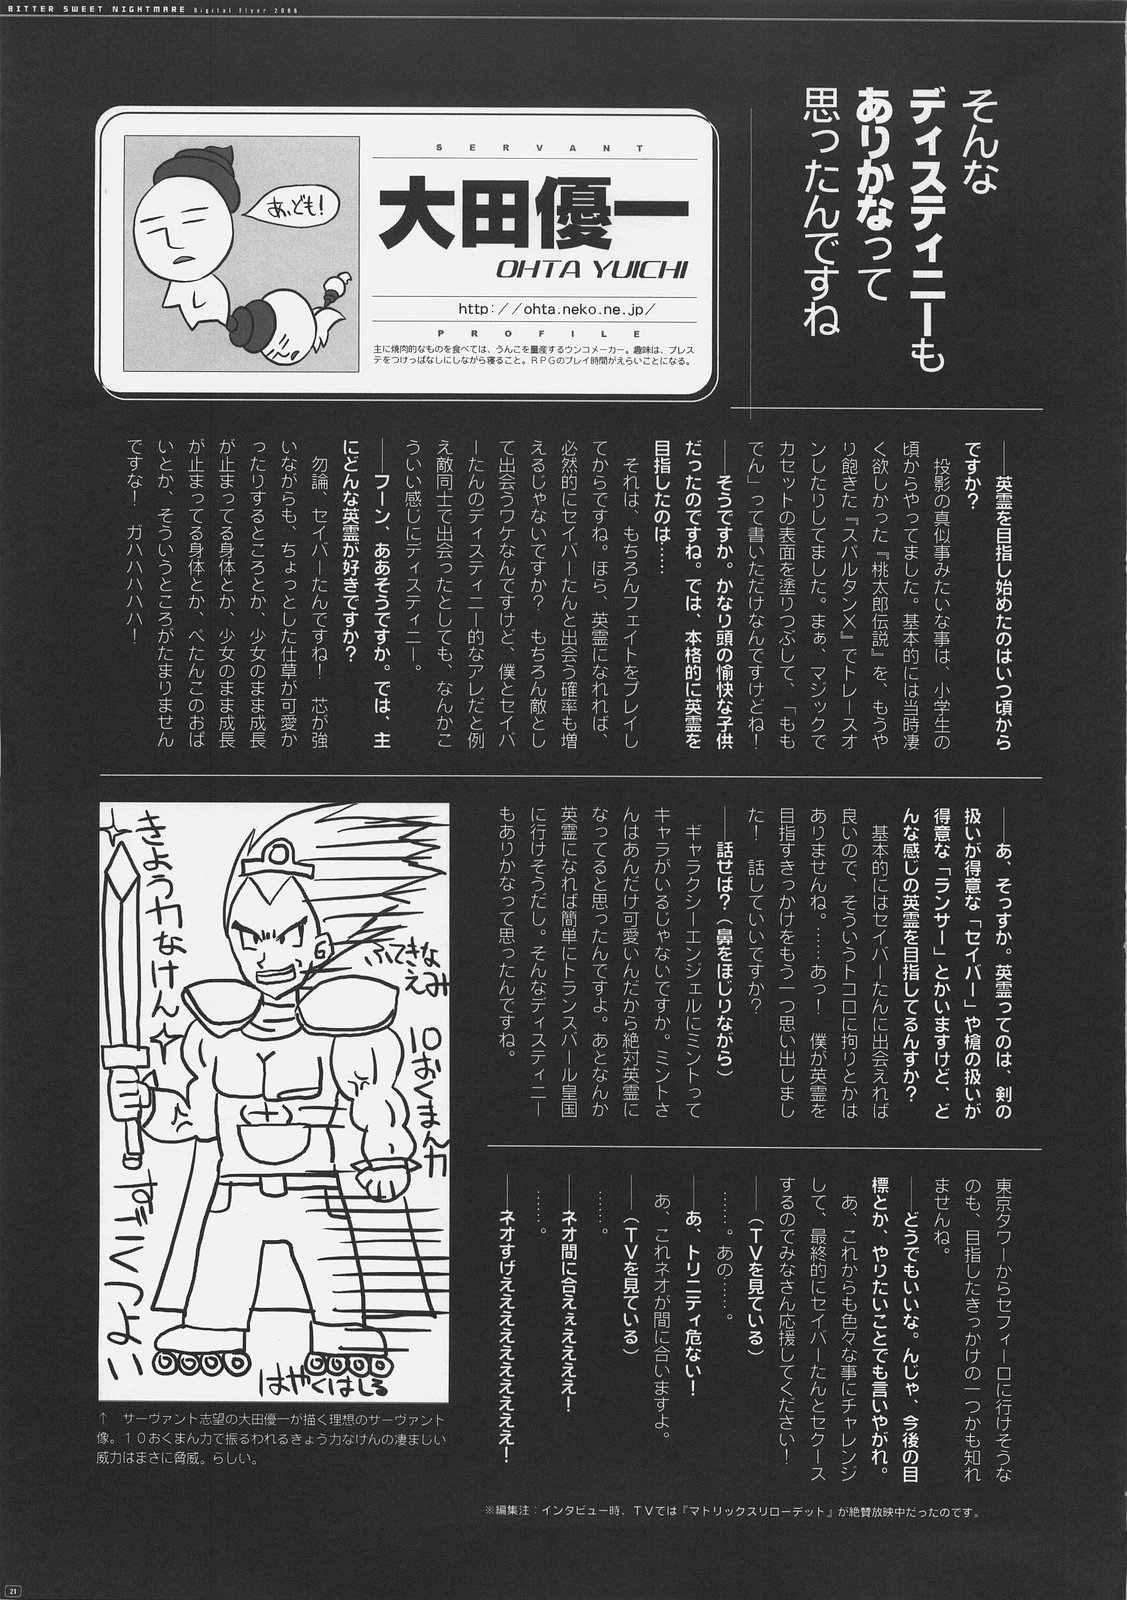 BITTER SWEET NIGHTMARE Digital Flyer 2006
そんな
ディスティニーも
ありかなって
思ったんですね
あ、ども!
SERVANT
大田優一
OHTA YUICHI
http://ohta.neko.ne.jp/
PROFILE
主に焼肉的なものを食べては、うんこを量産するウンコメーカー。趣味は、プレス
テをつけっぱなしにしながら寝ること。RPGのプレイ時間がえらいことになる。
――英霊を目指し始めたのはいつ頃から
ですか?
投影の真似事みたいな事は、小学生の
頃からやってました。基本的には当時凄
く欲しかった『桃太郎伝説』を、もうや
り飽きた『スパルタンX』でトレースオ
ンしたりしてました。まぁ、マジックで
カセットの表面を塗りつぶして、「もも
でん」って書いただけなんですけどね!
――そうですか。かなり頭の愉快な子供
だったのですね。では、本格的に英霊を
目指したのは……
それは、もちろんフェイトをプレイし
てからですね。ほら、英霊になれれば、
必然的にセイバーたんと出会う確率も増
えるじゃないですか? もちろん敵とし
て出会うワケなんですけど、僕とセイバ
ーたんのディスティニー的なアレだと例
え敵同士で出会ったとしても、なんかこ
ういい感じにディスティニー。
――フーン、ああそうですか。では、主
にどんな英霊が好きですか?
勿論、セイバーたんですね! 芯が強
いながらも、ちょっとした仕草が可愛か
ったりするところとか、少女のまま成長
が止まってる身体とか、少女のまま成長
が止まってる身体とか、ぺたんこのおぱ
いとか、そういうところがたまりません
ですな! ガハハハハハ!
――あ、そっすか。英霊ってのは、剣の
扱いが得意な「セイバー」や槍の扱いが
得意な「ランサー」とかいますけど、ど
んな感じの英霊を目指してるんすか?
基本的にはセイバーたんに出会えれば
良いので、そういうトコロに拘りとかは
ありませんね。……あっ! 僕が英霊を
目指すきっかけをもう一つ思い出しまし
た! 話していいですか?
――話せば?(鼻をほじりながら)
ギャラクシーエンジェルにミントって
キャラがいるじゃないですか。ミントさ
んはあんだけ可愛いんだから絶対英霊に
なってると思ったんですよ。あとなんか
英霊になれば簡単にトランスバール皇国
に行けそうだし。そんなディスティニー
もありかなって思ったんですね。
東京タワーからセフィーロに行けそうな
のも、目指したきっかけの一つかも知れ
ませんね。
――どうでもいいな。んじゃ、今後の目
標とか、やりたいことでも言いやがれ。
あ、これからも色々な事にチャレンジ
して、最終的にセイバーたんとセクース
するのでみなさん応援してください!
――(TVを見ている)
……。あの……。
――あ、トリニティ危ない!
あ、これネオが間に合いますよ。
――(TVを見ている)
……。
――ネオ間に合えぇえええ!
……。
――ネオすげええええええええええ!
きょう力なけん
すごくつよい
ふてきな
えみ
10おくまん力
はやくはしる
↑ サーヴァント志望の大田優一が描く理想のサーヴァント
像。10おくまん力で振るわれるきょう力なけんの凄まじい
威力はまさに脅威。らしい。
※編集注:インタビュー時、TVでは『マトリックスリローデット』が絶賛放映中だったのです。
21